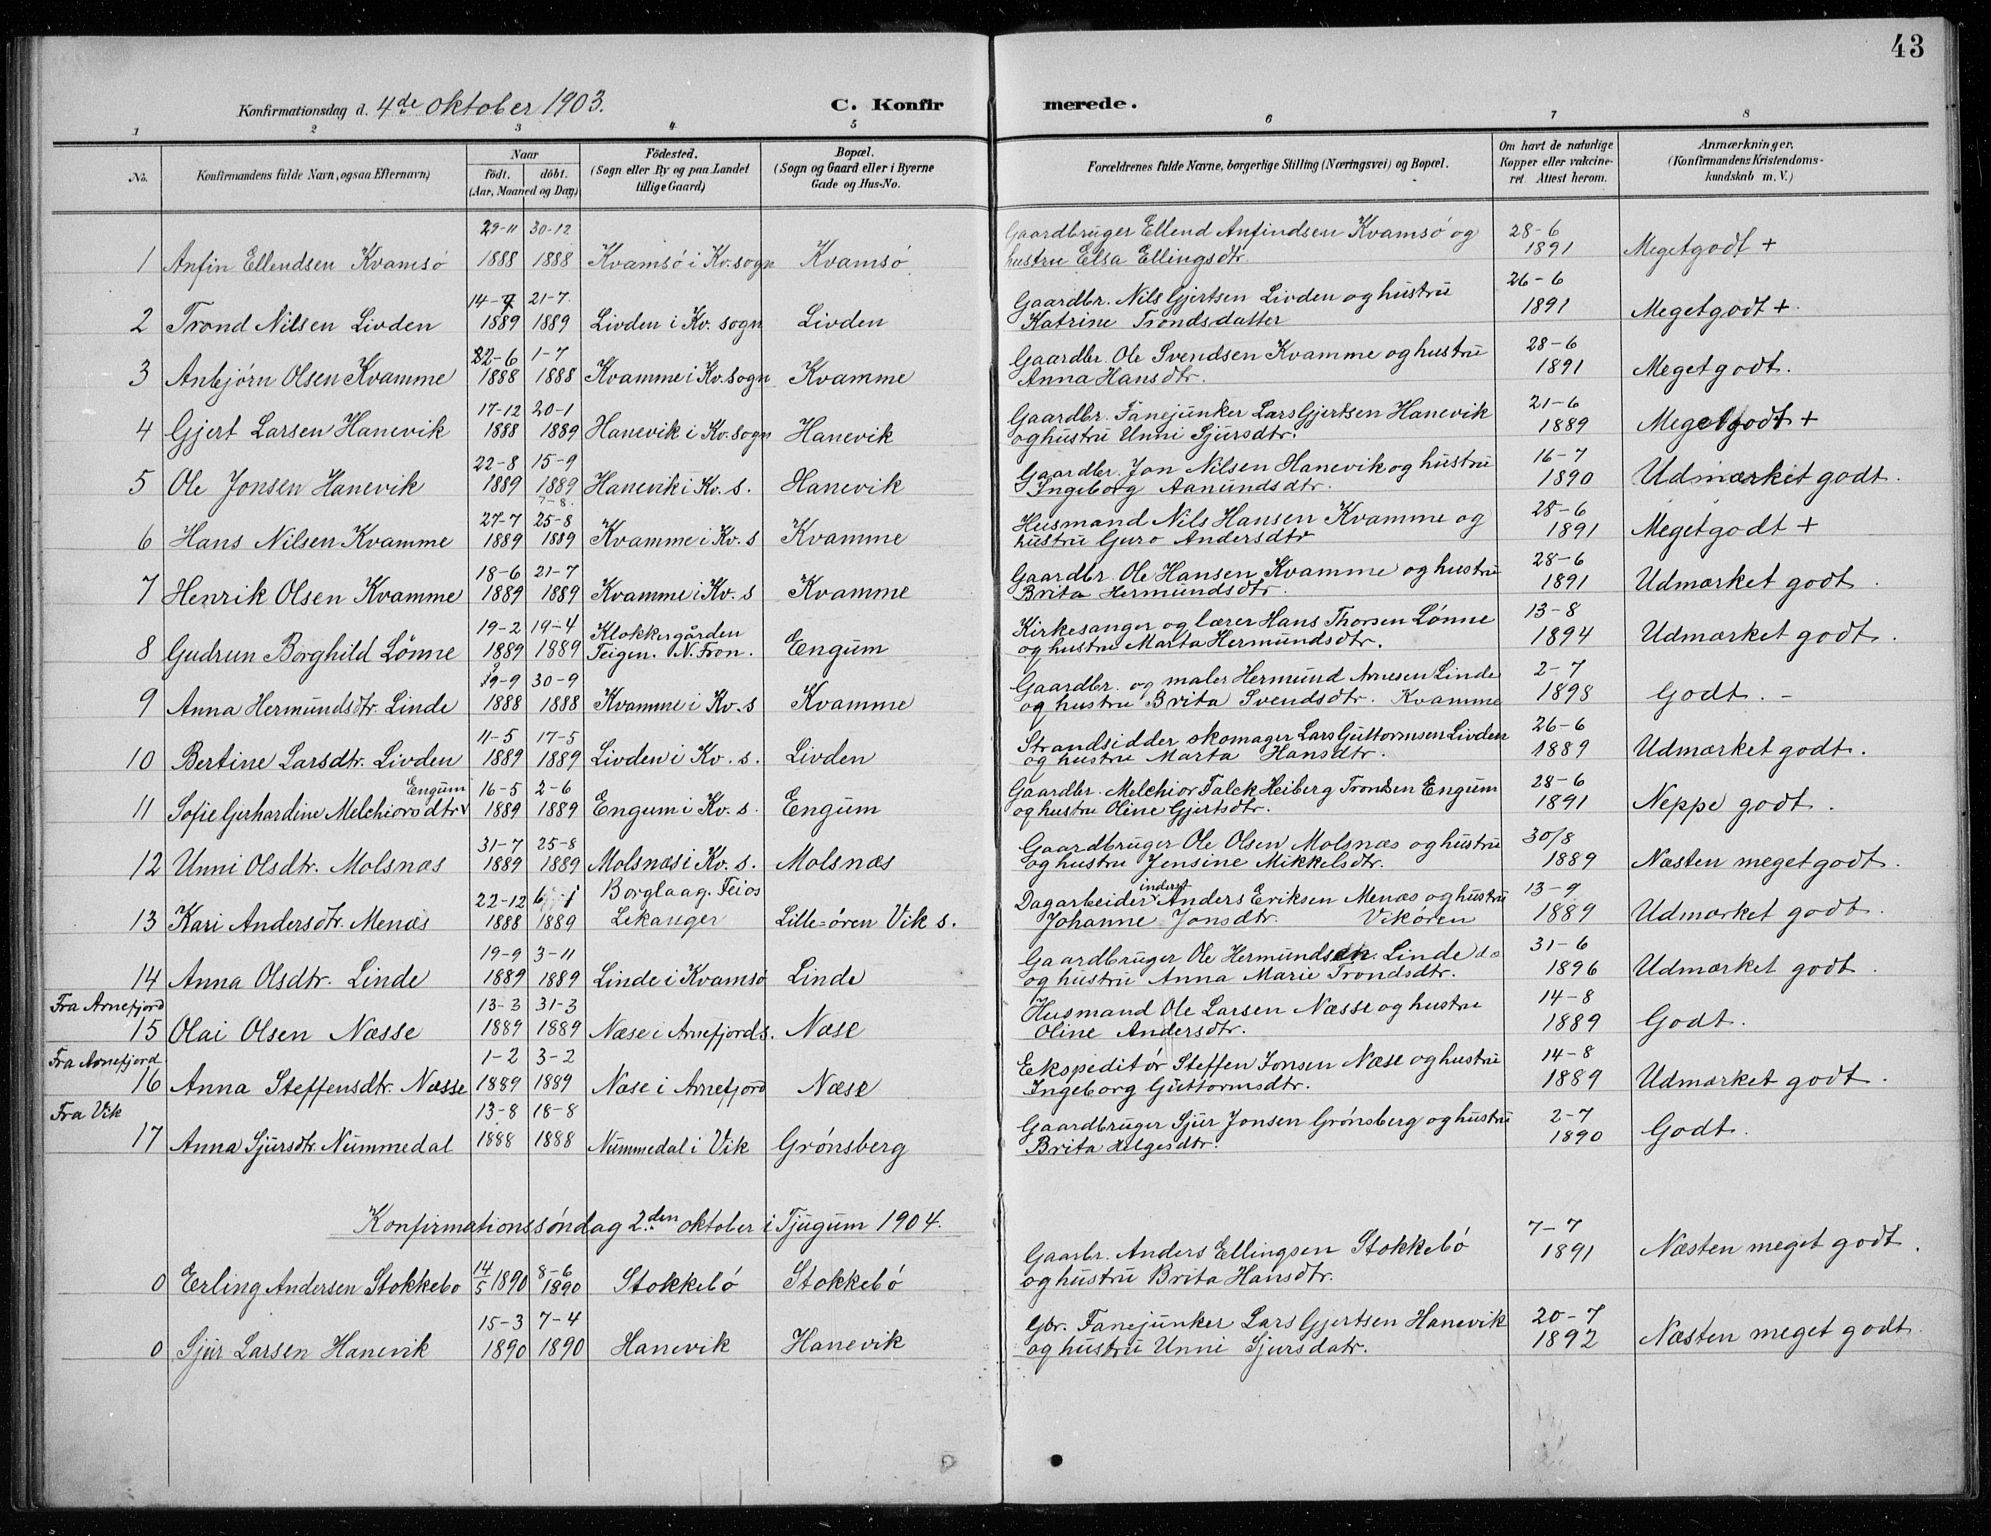 43
Konfirmationsdag d. 4de oktober 1903. C. Konfirmerede.
1 2 3 4 5 6 7 8
No. Konfirmandens fulde Navn, ogsaa Efternavn) Naar födt. döbt. (Aar, Maaned og Dag) Födested. (Sogn eller By og paa Landet tillige Gaard) Bopæl. (Sogn og Gaard eller i Byerne Gade og Hus-No. Forældrenes fulde Navne, borgerlige Stilling (Næringsvei) og Bopæl. Om havt de naturlige Kopper eller vakcineret Attest herom. Anmærkninger. (Konfirmandens Kristendomskundskab m. V.)
29-11 30-12 Gaardbruger Ellend Anfindsen Kvamsö og 28-6
1 Anfin Ellendsen Kvamsö 1888 1888 Kvamsö i Kv. sogn Kvamsö hustru Elsa Ellingsdtr. 1891 Megetgodt +
14-7 21-7. Gaardbr. Nils Gjertsen Livden og hustru 26-6
2 Trond Nilsen Livden 1889 1889 Livden i Kv. sogn Livden Katrine Trondsdatter 1891 Megetgodt +.
22-6 1-7 Gaardbr. Ole Svendsen Kvamme og hustru 28-6
3 Anbjørn Olsen Kvamme 1888 1888 Kvamme i Kv. sogn Kvamme Anna Hansdtr. 1891 Megetgodt.
17-12 20-1 Gaardbr. Fanejunker Lars Gjertsen Hanevik 21-6
4 Gjert Larsen Hanevik 1888 1889 Hanevik i Kv. sogn Hanevik og hustru Unni Sjursdtr. 1889 Megetgodt +
22-8 15-9 Gaardbr. Jon Nilsen Hanevik og hustru 16-7
5 Ole Jonsen Hanevik 1889 1889 Hanevik i Kv. s. Hanevik Ingeborg Aanundsdtr. 1890 Udmærket godt.
7-8.
27-7 25-8 Husmand Nils Hansen Kvamme og 28-6
6 Hans Nilsen Kvamme 1889 1889 Kvamme i Kv. s Kvamme hustru Guro Andersdtr 1891 Megetgodt +
18-6 21-7 Gaardbr. Ole Hansen Kvamme og hustru 28-6
7 Henrik Olsen Kvamme 1889 1889 Kvamme i Kv. s Kvamme Brita Hermundsdtr. 1891 Udmærket godt.
19-2 19-4 Klokkergården Kirkesanger og lærer Hans Thorsen Lønne 13-8
8 Gudrun Borghild Lönne 1889 1889 Teigen. N. Fron. Engum og hustru Marta Hermundsdtr. 1894 Udmærket godt.
19-9 30-9 Gaardbr. og maler Hermund Arnesen Linde 2-7
9 Anna Hermundsdtr. Linde 1888 1888 Kvamme i Kv. s Kvamme og hustru Brita Svendsdtr. Kvamme 1898 Godt. -
11-5 17-5 Strandsidder skomager Lars Guttormsen Livden 26-6
10 Bertine Larsdtr. Livden 1889 1889 Livden i Kv. s. Livden og hustru Marta Hansdtr. 1889 Udmærket godt.
Engum 16-5 2-6 Gaardbr. Melchior Falck Heiberg Tronsen Engum 28-6
11 Sofie Gerhardine Melchiorsdtr 1889 1889 Engum i Kv. s. Engum og hustru Oline Gjertsdtr. 1891 Neppe godt.
31-7 25-8 Gaardbruger Ole Olsen Molsnæs og hustru 30/8
12 Unni Olsdtr. Molsnæs 1889 1889 Molsnæs i Kv. s. Molsnæs og hustru Jensine Mikkelsdtr. 1889 Næsten megetgodt.
22-12 6-1 Borglaag. Feios Dagarbeider inderst Anders Eriksen Menæs og hustru 13-9
13 Kari Andersdtr. Menæs 1888 1889 Lekanger Lille-ören Vik s. Johanne Jonsdtr. Vikören 1889 Udmærket godt.
19-9 3-11 Gaardbruger Ole Hermundsen Linde do 31-6
14 Anna Olsdtr. Linde 1889 1889 Linde i Kvamsö Linde og hustru Anna Marie Trondsdtr. 1896 Udmærket godt.
Fra Arnefjord 13-3 31-3 Husmand Ole Larsen Næsse og hustru 14-8
15 Olai Olsen Næsse 1889 1889 Næse i Arnefjord s. Næse Oline Andersdtr. 1889 Godt.
Fra Arnefjord 1-2 3-2 Ekspeditör Steffen Jonsen Næse og hustru 14-8
16 Anna Steffensdtr. Næsse 1889 1889 Næse i Arnefjord Næse Ingeborg Guttormsdtr. 1889 Udmærket godt.
Fra Vik 13-8 18-8 Gaardbruger Sjur Jonsen Grønsberg og hustru 2-7
17 Anna Sjursdtr. Nummedal 1888 1888 Nummedal i Vik Grønsberg Brita Helgesdtr. 1890 Godt.
Konfirmationssøndag 2.den oktober i Tjugum 1904.
14/5 1890 8-6 Gaarbr. Anders Ellingsen Stokkebö 7-7
0 Erling Andersen Stokkebo 1890 Stokkebö Stokkebö og hustru Brita Hansdtr. 1891 Næsten meget godt.
15-3 7-4 Gbr. Fanejunker Lars Gjertsen Hanevik 20-7
0 Sjur Larsen Hanevik 1890 1890 Hanevik Hanevik og hustru Unni Sjursdatr. 1892 Næsten meget godt